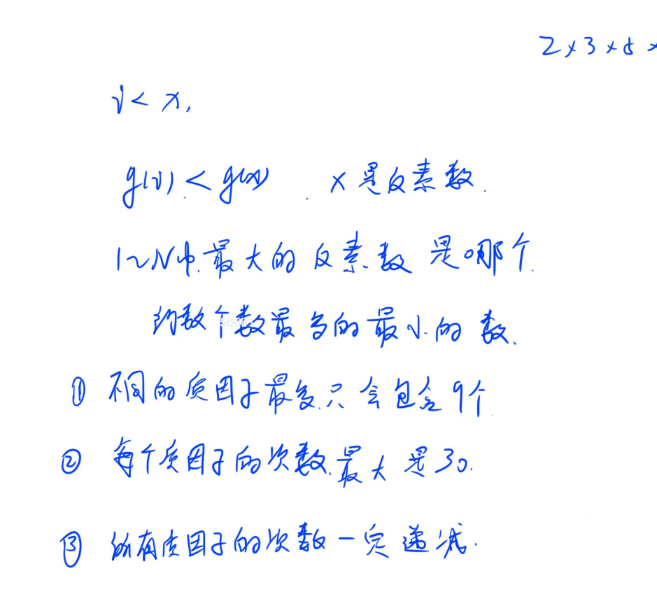 2×3×5×
i<x,
g(i)<g(x). x是反素数.
1~N中.最大的反素数是哪个.
约数个数最多的最小的数.
① 不同的质因子最多只会包含9个
② 每个质因子的次数最大是30.
③ 所有质因子的次数一定递减.